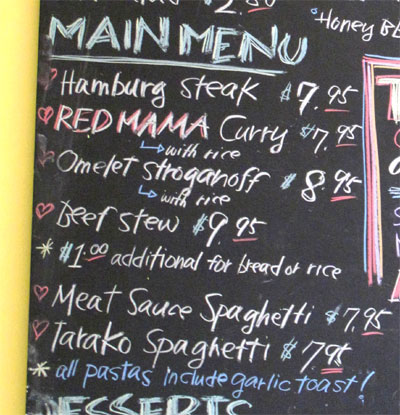 2.50
Honey
MAIN MENU
Hamburg steak $7.95
RED MAMA Curry $7.95
with rice
Omelet stroganoff $8.95
with rice
Beef stew $9.95
* $1.00 additional for bread or rice
Meat Sauce Spaghetti $7.95
Tarako Spaghetti $7.95
* all pastas include garlic toast!
DESSERTS